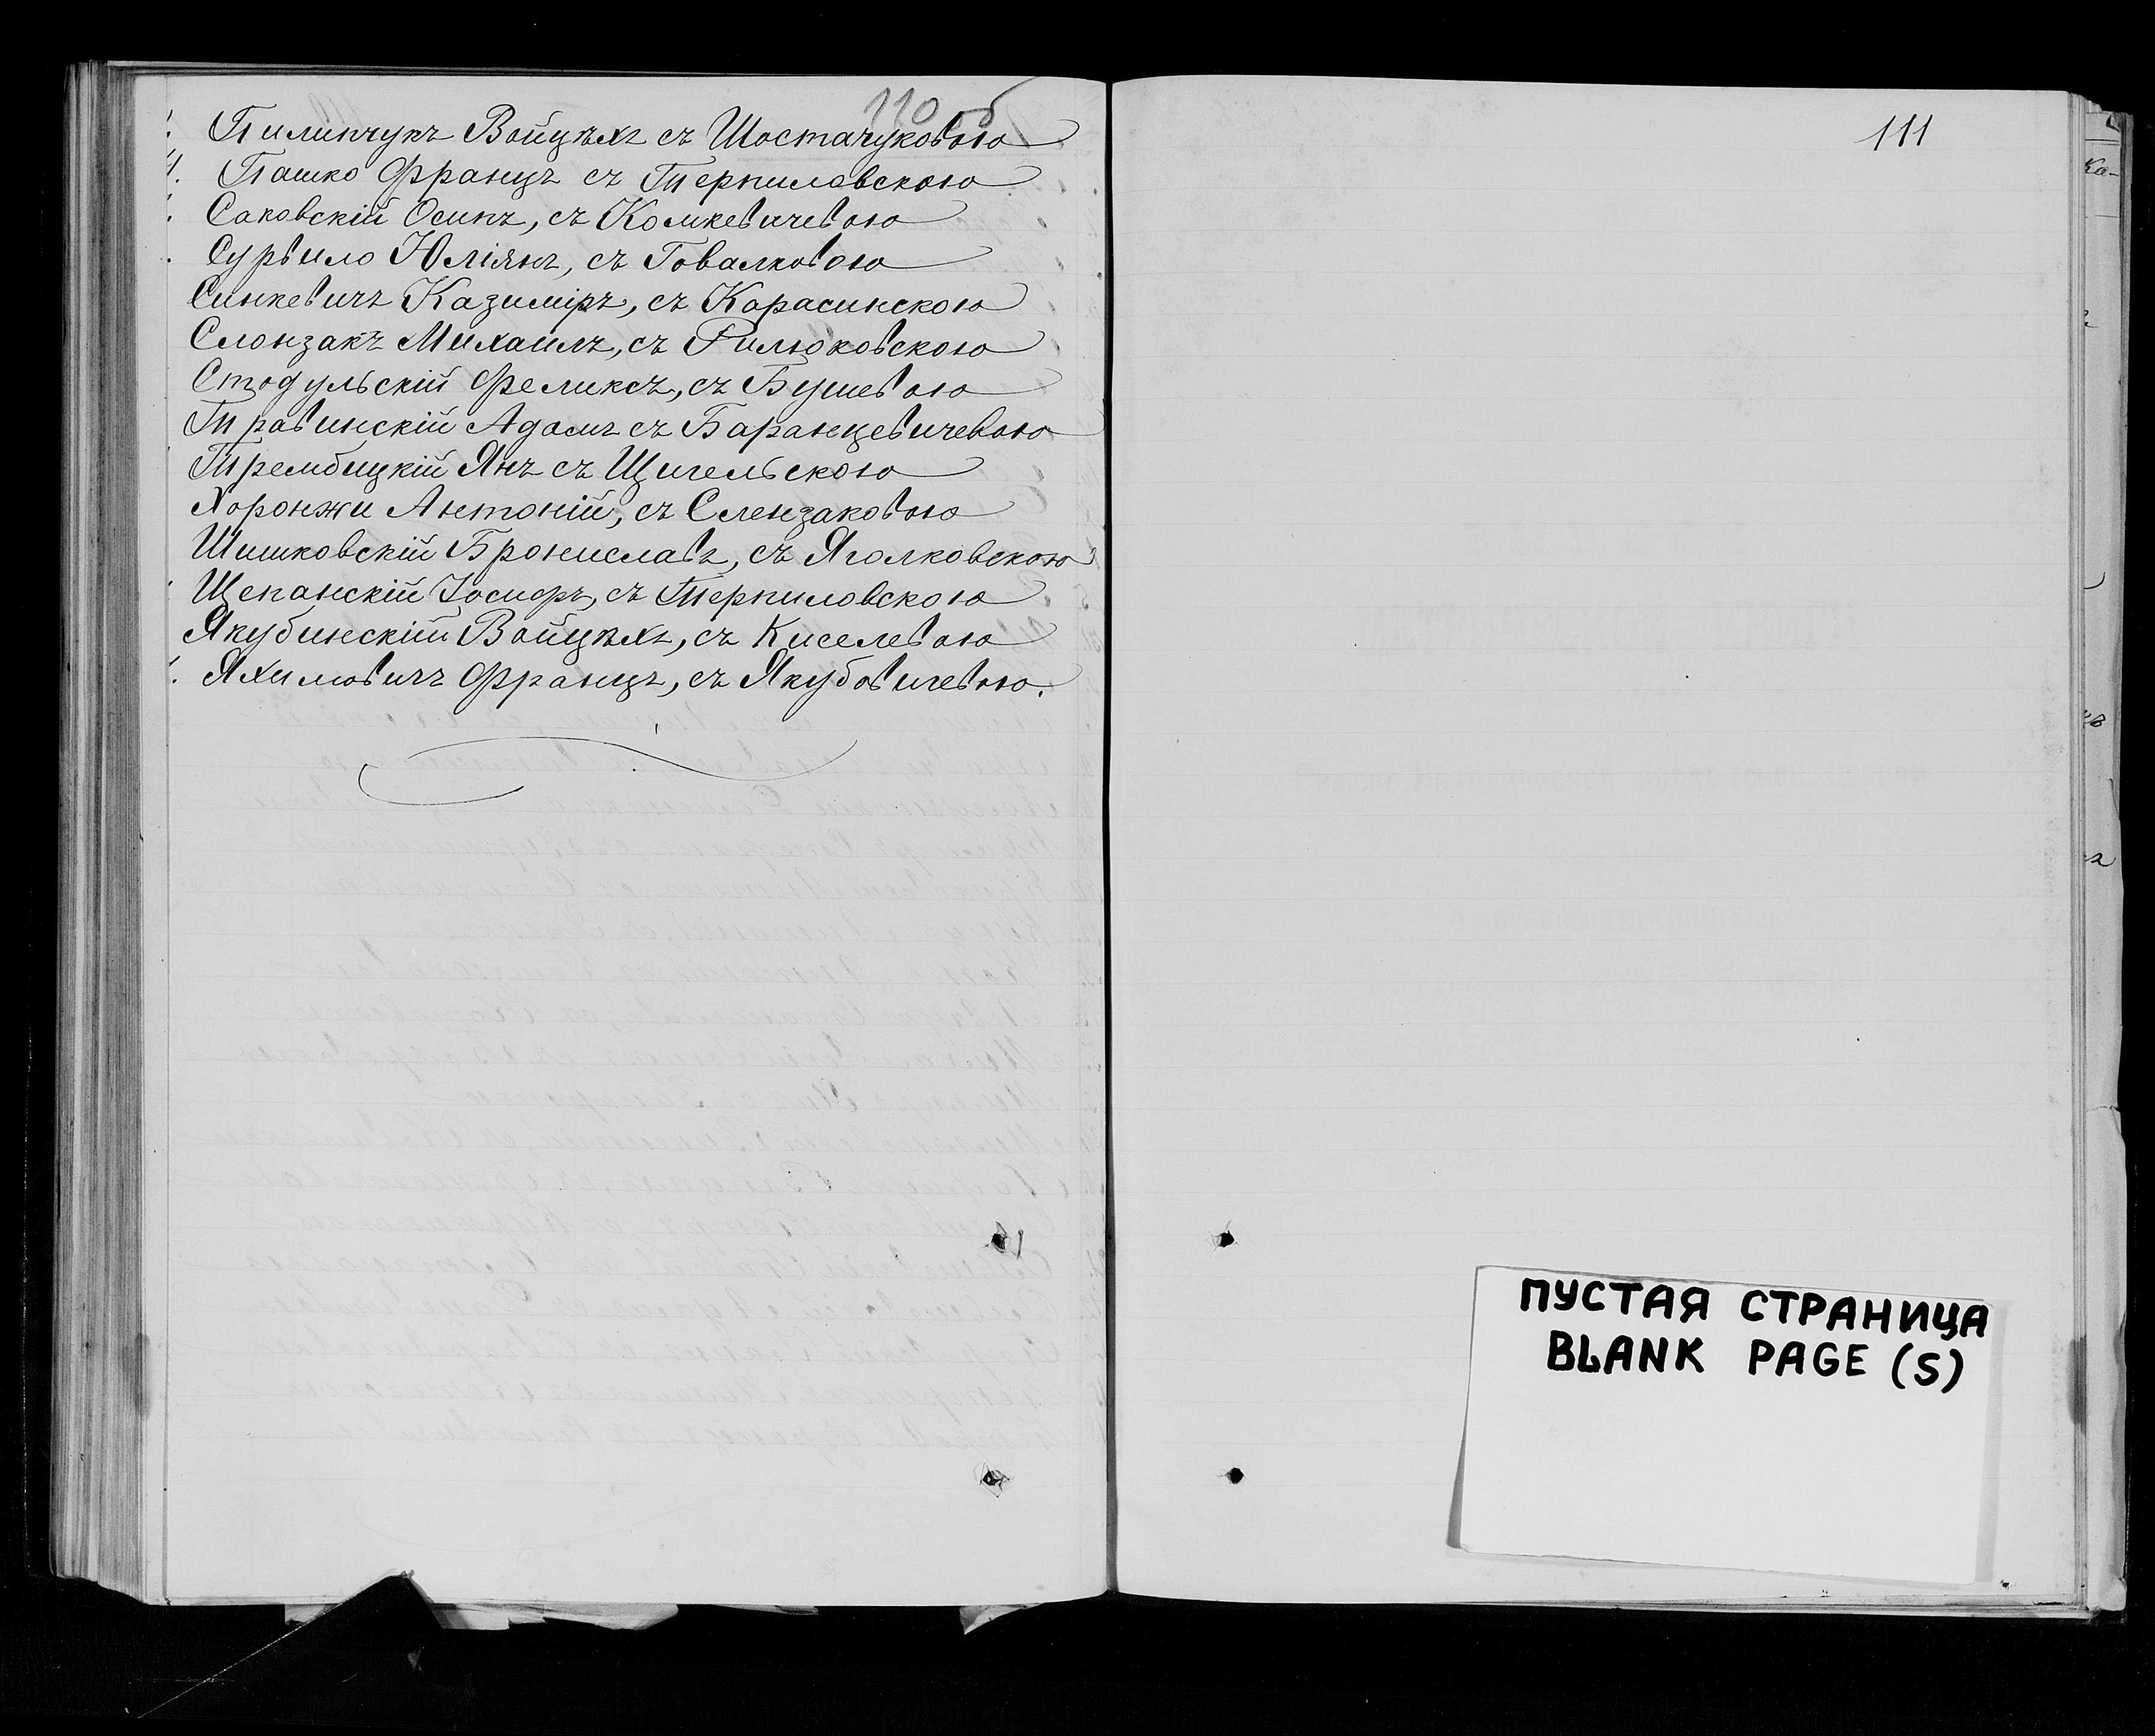 110 об
Пилипчукъ Войцѣхъ съ Шостачуковою
Пашко Францъ съ Терпиловскою
Саковскій Осипъ, съ Комкевичевою
Сурвило Юліянъ, съ Говалковою
Синкевичъ Казиміръ, съ Карасинскою
Слонзакъ Михаилъ, съ Рилюковскою
Стодульскій Феликсъ, съ Бушевою
Травинскій Адамъ съ Баранцевичевою
Трембицкій Янъ съ Щигельскою
Хоронжи Антоній, съ Слензаковою
Шишковскій Брониславъ, съ Яголковскою
Щепанскій Іосифъ, съ Терпиловскою
Якубинскій Войцѣхъ, съ Киселевою
Яхимовичъ Францъ, съ Якубовичевою.
111
ПУСТАЯ СТРАНИЦА
BLANK PAGE (S)